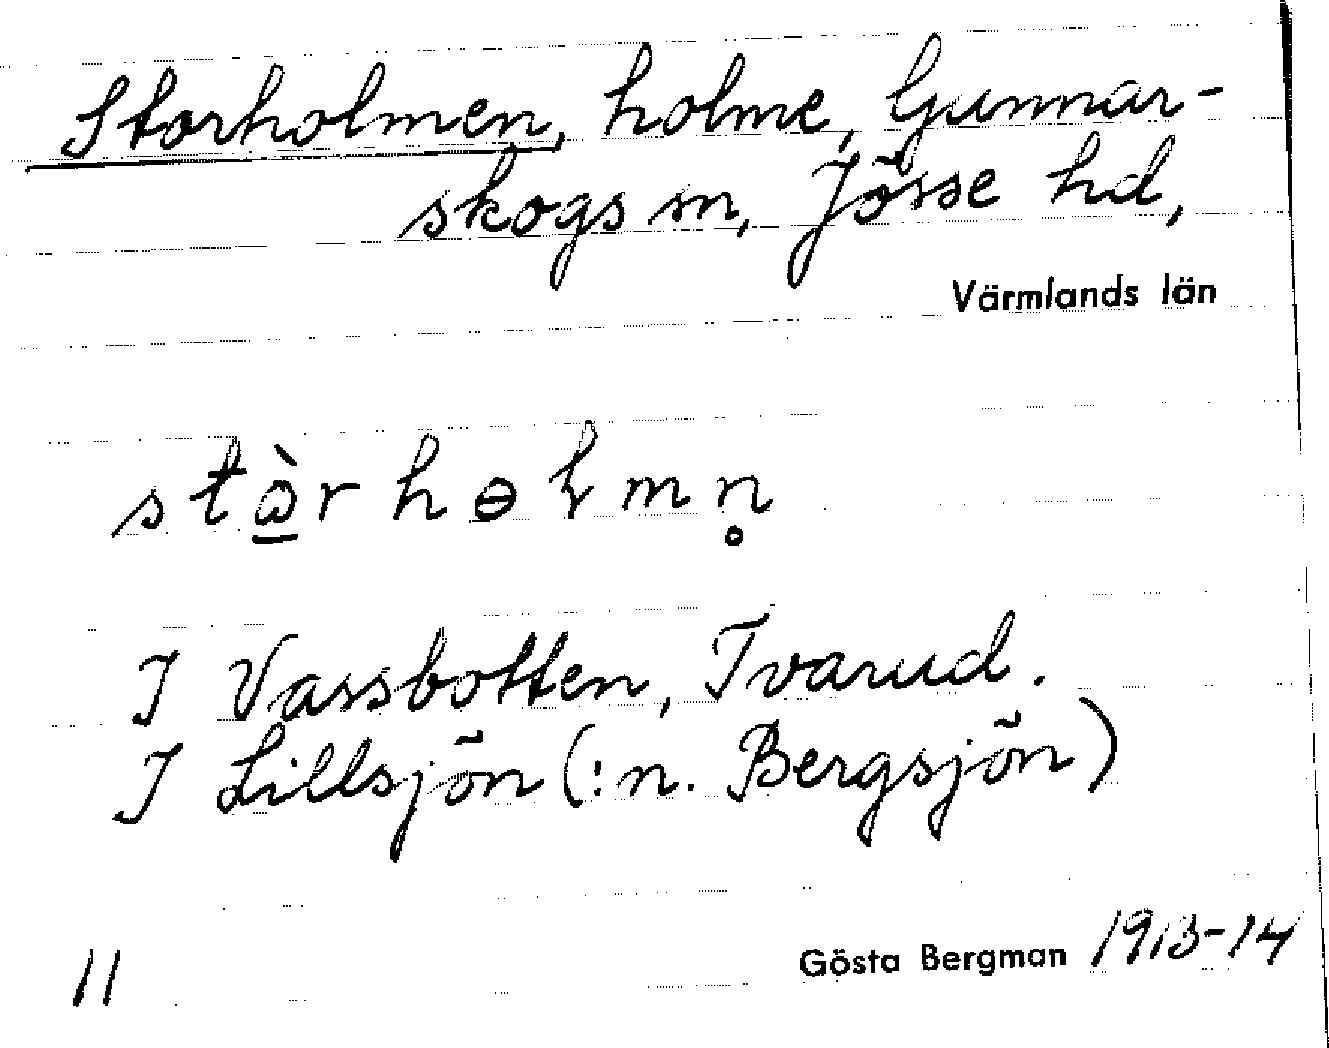 Storholmen, holme, Gunnar-
skogs sn, Jösse hd,
Värmlands län
stὼ̲rhɵɽmn̥
I Vassbotten, Tvarud.
I Lillsjön (: n. Bergsjön)
11
Gösta Bergman 1913-14